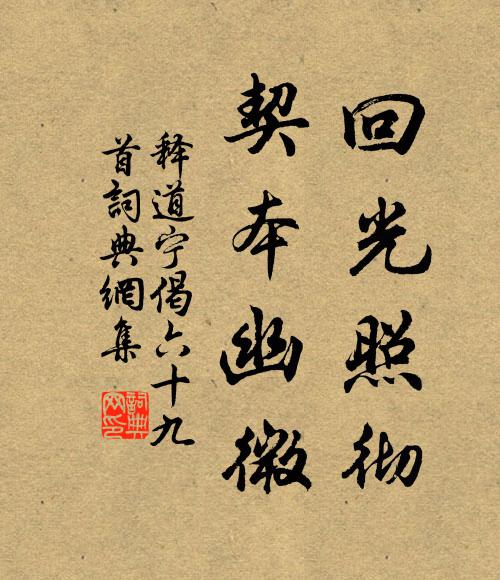 回光照彻
契本幽微
释道宁偈六十九
首詞典網集
詞典
网印